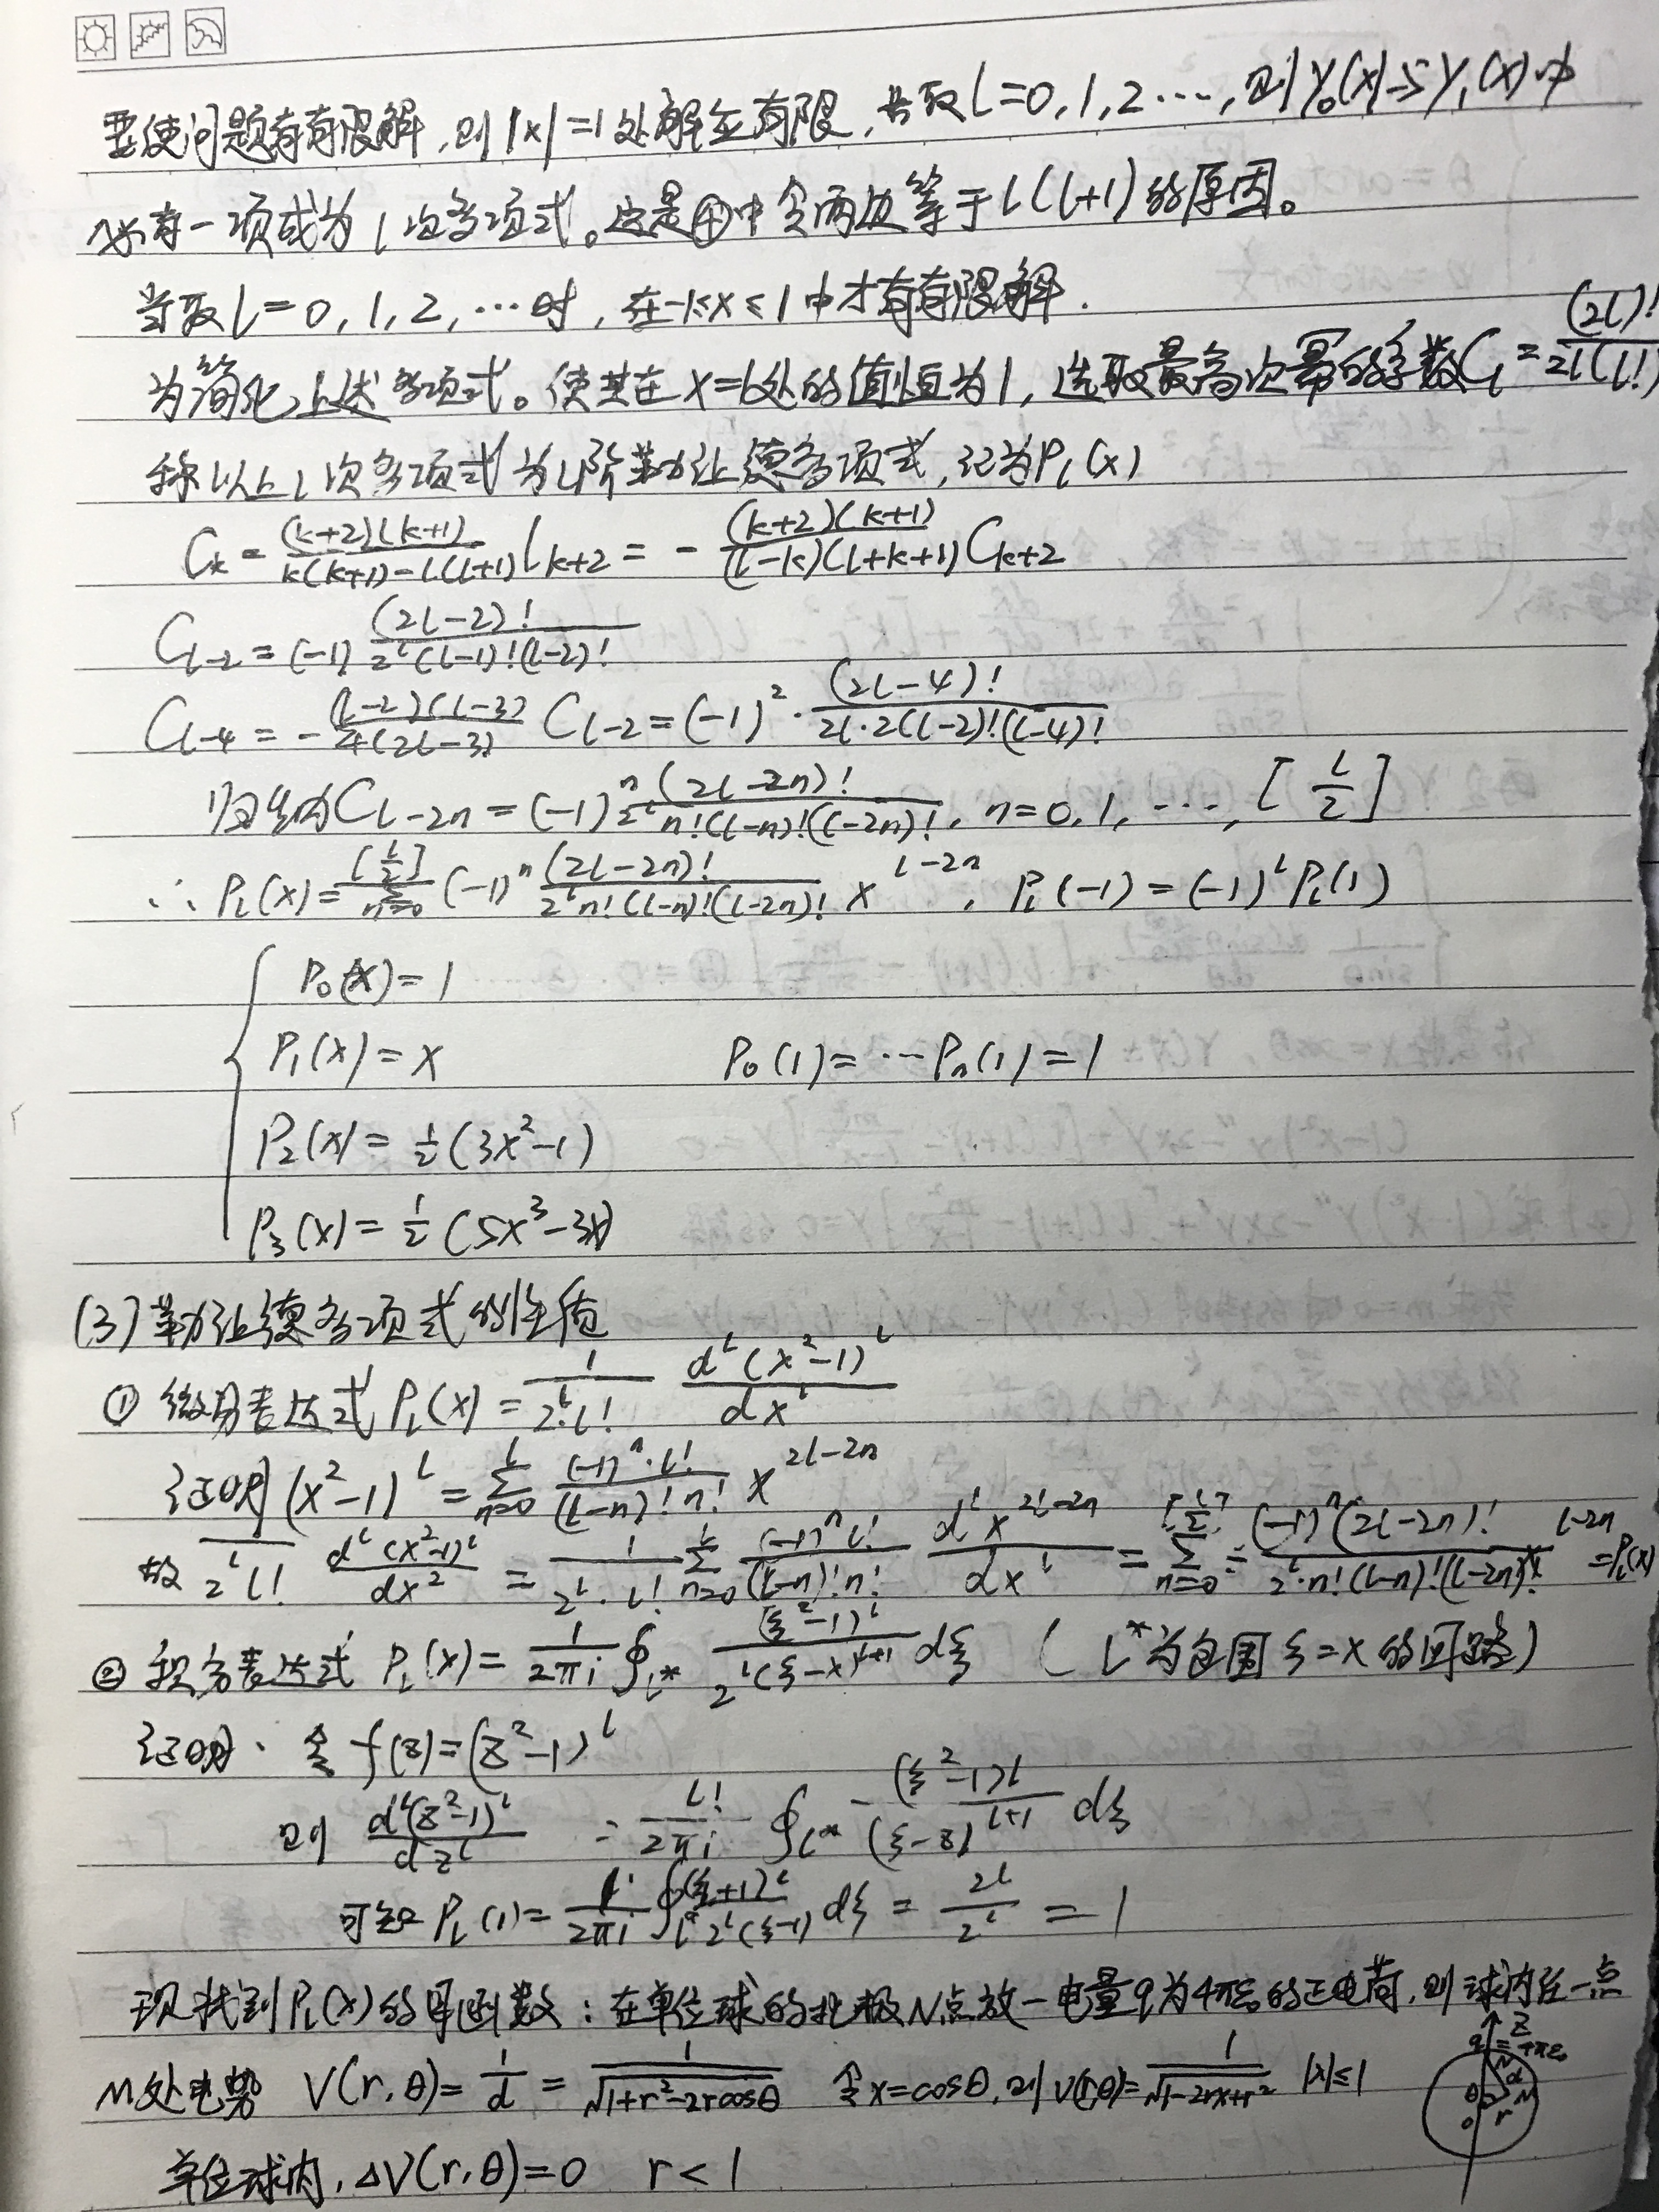 要使问题有有限解,则|x|=1处解应有限,若取l=0,1,2⋯,则y₀(x)与y₁(x)中
必有一项成为l次多项式。这是④中令两边等于l(l+1)的原因。
当取l=0,1,2,⋯时,在-1≤x≤1中才有有限解.
为简化上述多项式。使其在x=1处的值恒为1,选取最高次幂的系数C_l = (2l)!/2l(l!)
称以上l次多项式为l阶勒让德多项式,记为P_l(x)
C_k = (k+2)(k+1)/k(k+1)-l(l+1) C_{k+2} = - (k+2)(k+1)/(l-k)(l+k+1) C_{k+2}
C_{l-2} = (-1) (2l-2)!/2^l(l-1)!(l-2)!
C_{l-4} = - (l-2)(l-3)/4(2l-3) C_{l-2} = (-1)² · (2l-4)!/2l·2(l-2)!(l-4)!
归纳为C_{l-2n} = (-1)^n (2l-2n)!/2^l n!(l-n)!(l-2n)!, n=0,1,⋯,[l/2]
∴ P_l(x) = Σ_{n=0}^{[l/2]} (-1)^n (2l-2n)!/2^l n!(l-n)!(l-2n)! x^{l-2n}, P_l(-1) = (-1)^l P_l(1)
P₀(x) = 1
P₁(x) = x P₀(1) = ⋯P_n(1) = 1
P₂(x) = ½(3x²-1)
P₃(x) = ½(5x³-3x)
(3)勒让德多项式的性质
① 微分表达式 P_l(x) = 1/2^l·l! d^l(x²-1)^l/dx^l
证明 (x²-1)^l = Σ_{n=0}^{l} (-1)^n·l!/(l-n)!n! x^{2l-2n}
故 1/2^l l! d^l(x²-1)^l/dx² = 1/2^l·l! Σ_{n=0}^{l} (-1)^n l!/(l-n)!n! d^l x^{2l-2n}/dx^l = Σ_{n=0}^{[l/2]} (-1)^n(2l-2n)!/2^l·n!(l-n)!(l-2n)! x^{l-2n} = P_l(x)
② 积分表达式 P_l(x) = 1/2πi ∮_{l*} (ξ²-1)^l/2^l(ξ-x)^{l+1} dξ (l*为包围ξ=x的回路)
证明. 令 f(z) = (z²-1)^l
则 d^l(z²-1)^l/dz^l = l!/2πi ∮_{l*} (ξ²-1)l/(ξ-z)^{l+1} dξ
可知 P_l(1) = 1/2πi ∮_{l*} (ξ+1)^l/2^l(ξ-1) dξ = 2l/2^l = 1
现找到P_l(x)的母函数:在单位球的北极N点放一电量q为4πε₀的正电荷,则球内任一点
M处电势 V(r,θ) = 1/d = 1/√1+r²-2rcosθ 令x=cosθ,则V(r,θ) = 1/√1-2rx+r² |x|≤1
单位球内,ΔV(r,θ)=0 r<1
Z
q=4πε₀
N
d
θ
M
O
r